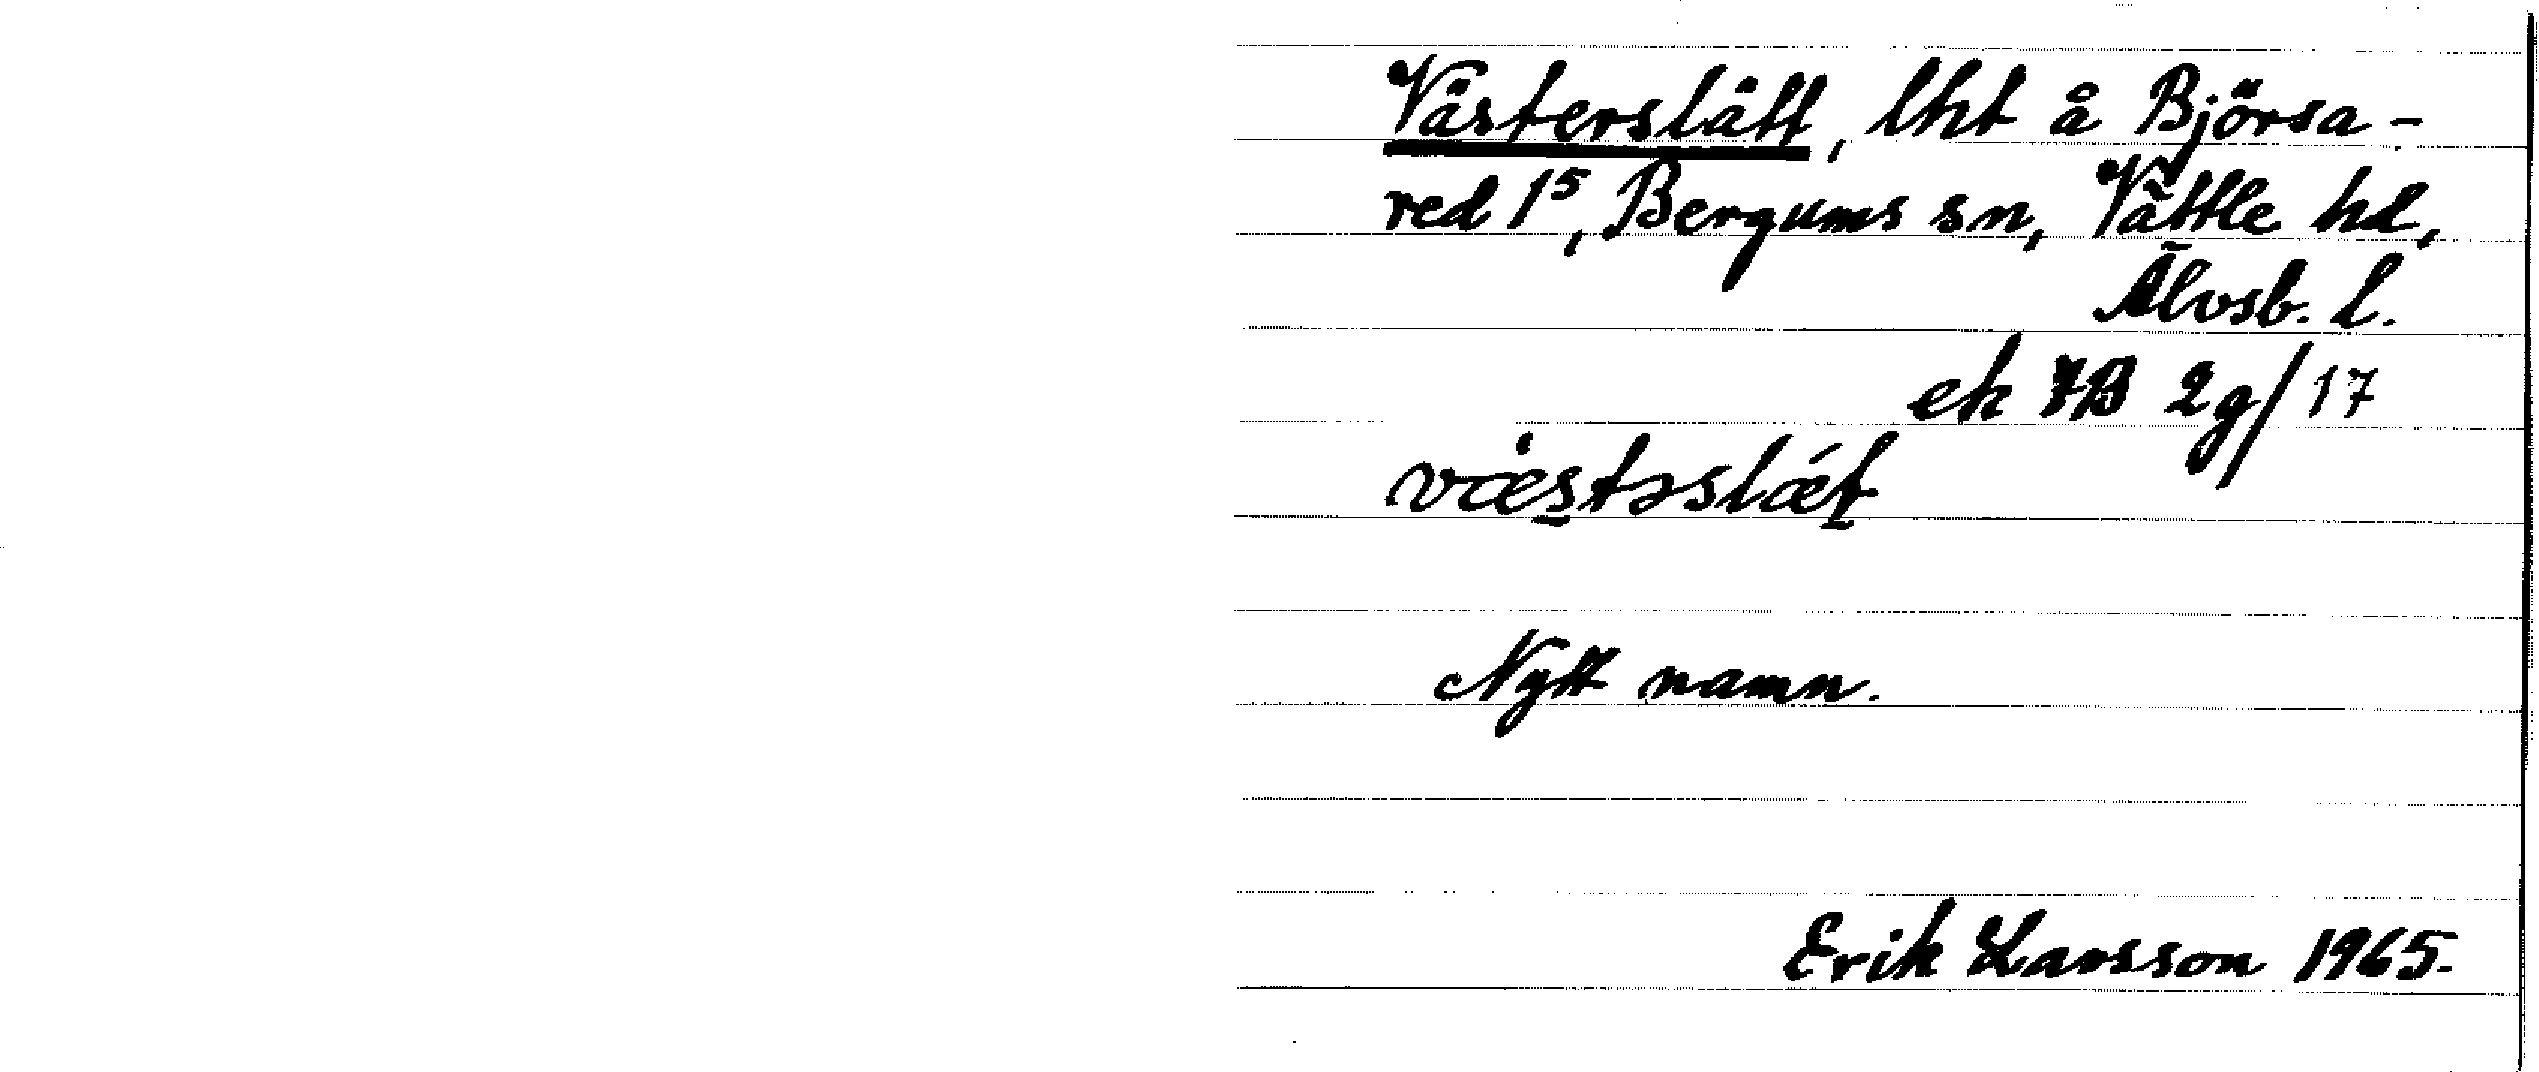 Västerslätt, lht å Björsa-
red 1⁵, Bergums sn, Vättle hd,
Älvsb. l.
ek 7B 2g/17
væ̀s̠təslǽt̠
Nytt namn.
Erik Larsson 1965.